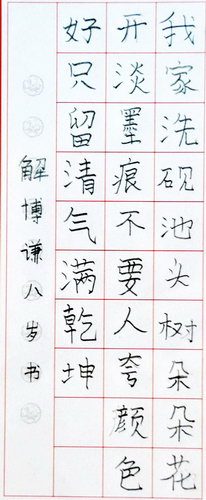 我家洗砚池头树朵朵花
开淡墨痕不要人夸颜色
好只留清气满乾坤
解博谦八岁书